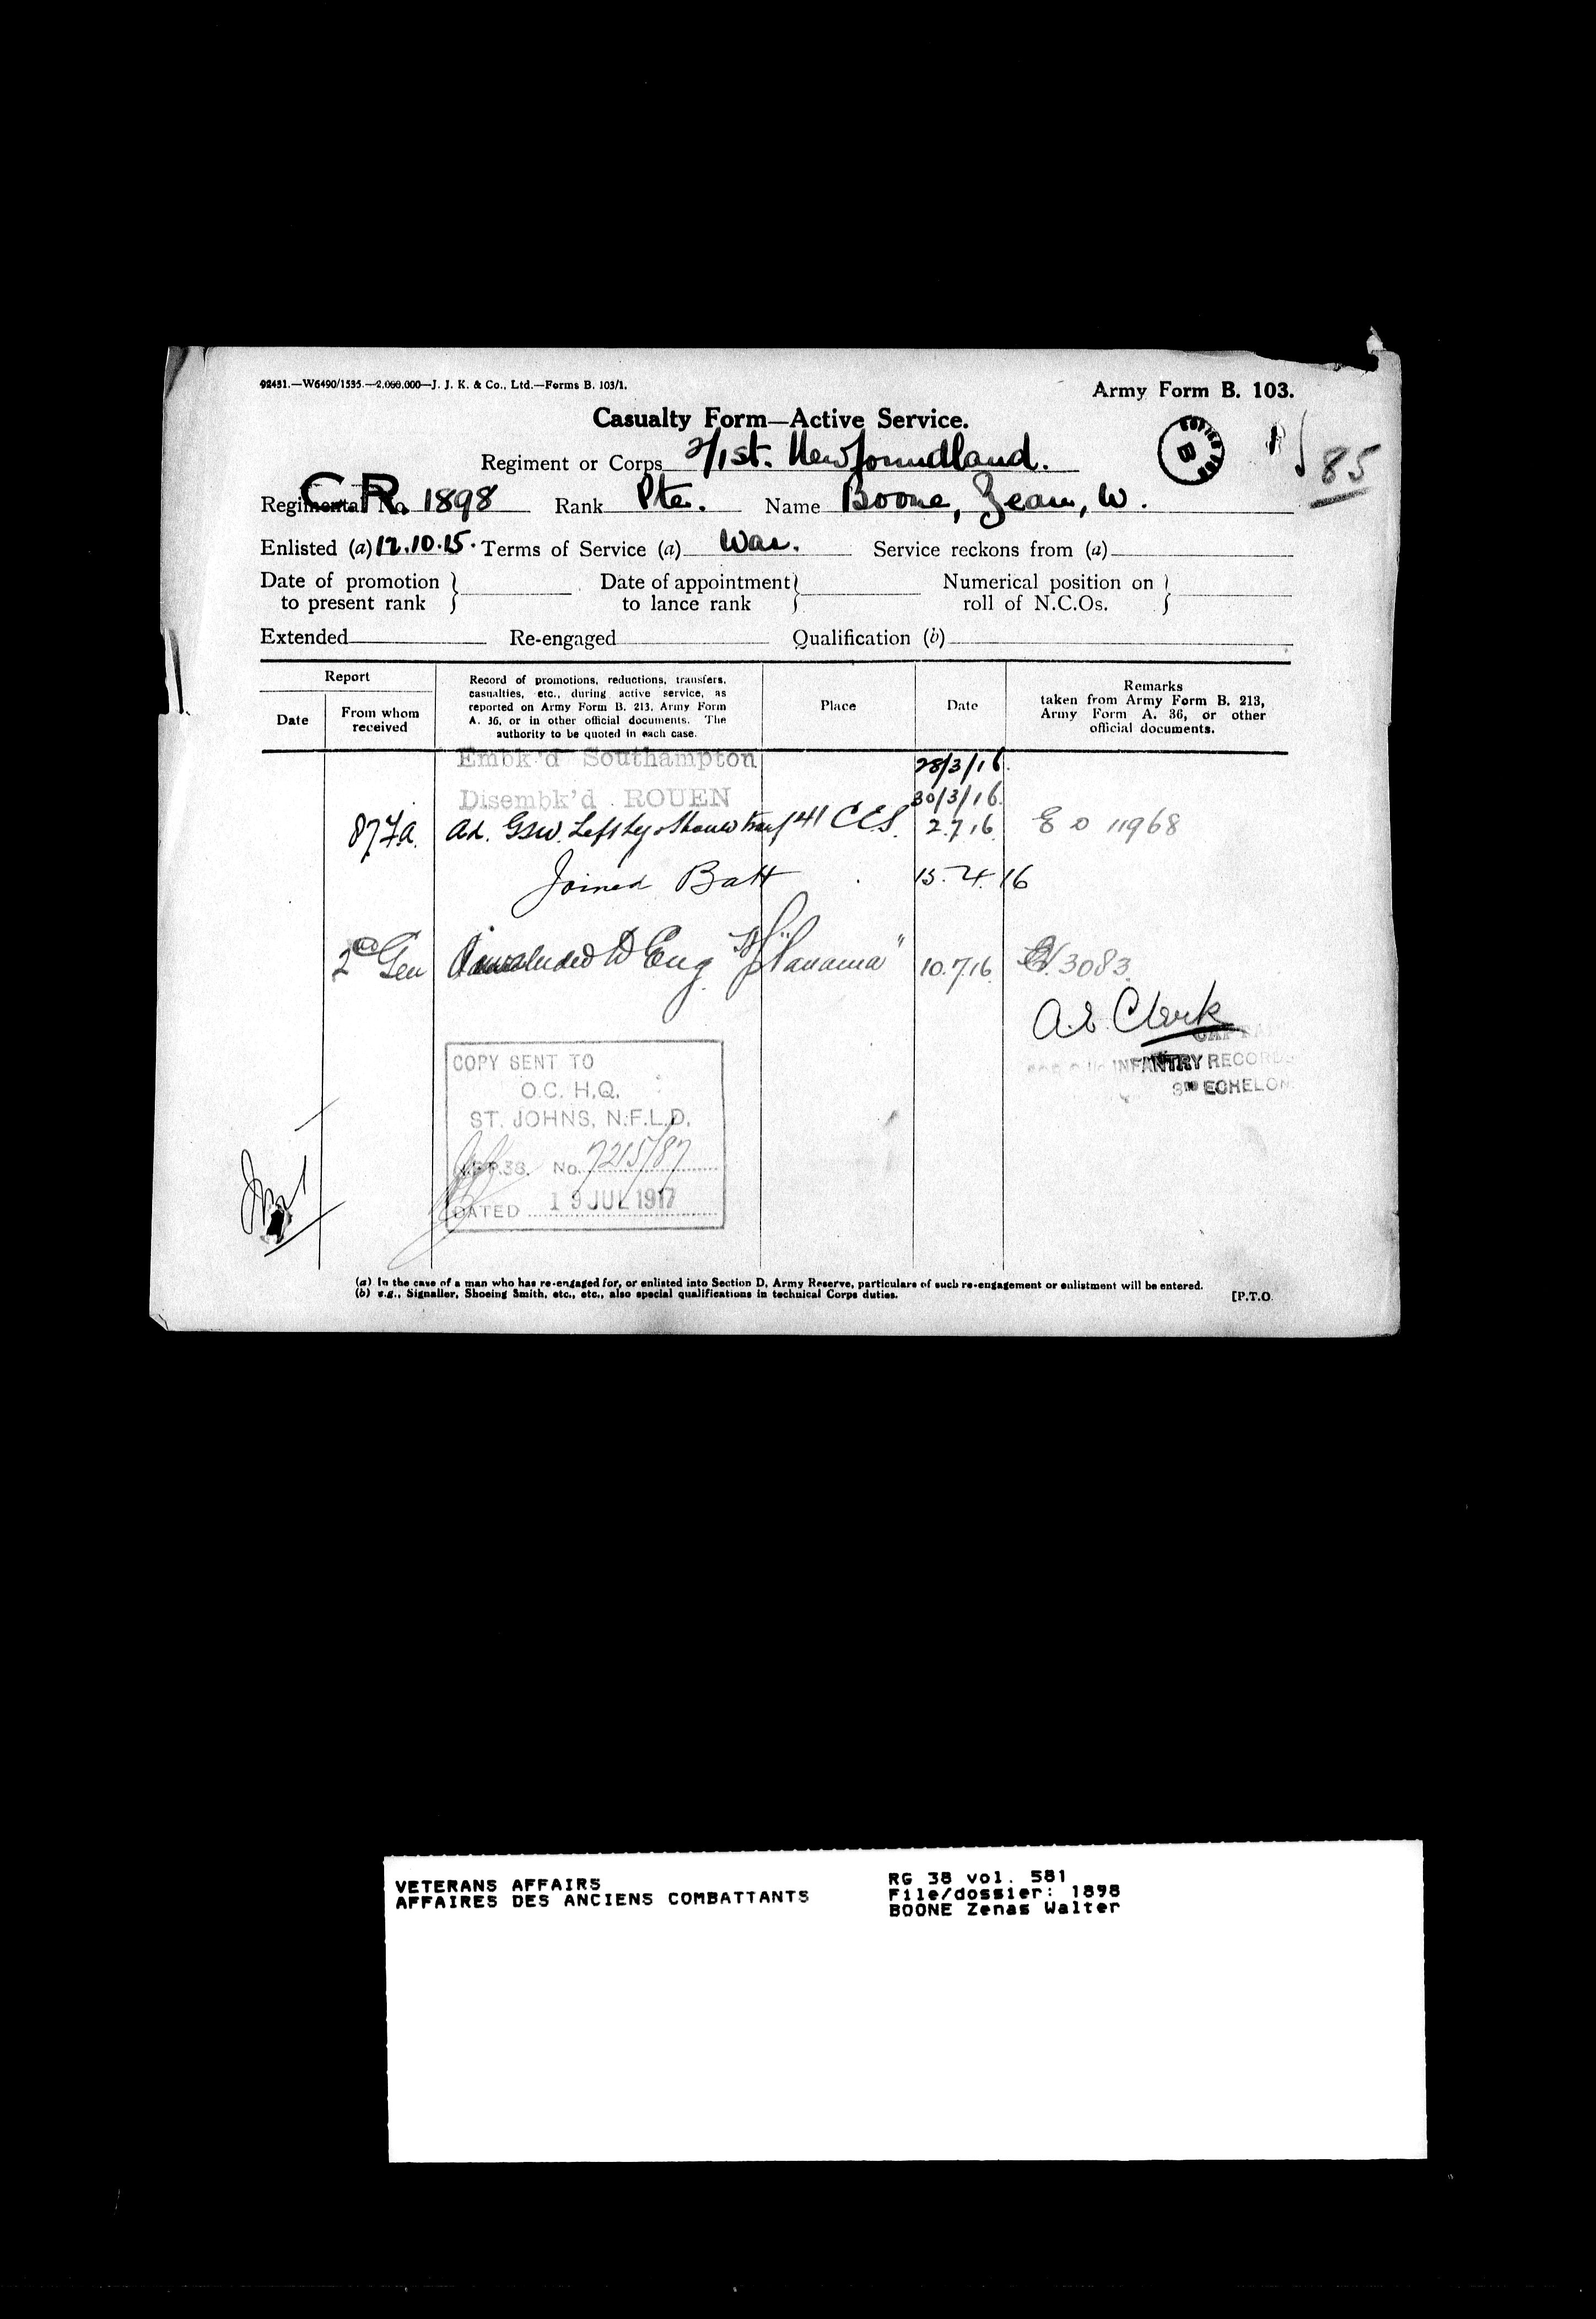 92431.—W6490/1535.—2,000,000—J. J. K. & Co., Ltd.—Forms B. 103/1.
Army Form B. 103.
Casualty Form—Active Service.
Regiment or Corps 2/1st. Newfoundland.
85
C.R.
Regimental No. 1898 Rank Pte. Name Boone, Zean, W.
Enlisted (a) 12.10.15. Terms of Service (a) War. Service reckons from (a)
Date of promotion to present rank
Date of appointment to lance rank
Numerical position on roll of N.C.Os.
Extended Re-engaged Qualification (b)
Report
Date
From whom received
Record of promotions, reductions, transfers, casualties, etc., during active service, as reported on Army Form B. 213, Army Form A. 36, or in other official documents. The authority to be quoted in each case.
Place
Date
Remarks taken from Army Form B. 213, Army Form A. 36, or other official documents.
Embk'd Southampton 28/3/16.
Disembk'd ROUEN 30/3/16.
87 Fa. Ad. GSW. Left Leg 41 CCS. 2.7.16 11968
Joined Batt 15.4.16
2nd Gen Invalided to Eng "Panama" 10.7.16 3083.
A.E. Clerk
INFANTRY RECORDS
3RD ECHELON.
COPY SENT TO
O.C. H.Q.
ST. JOHNS, N.F.L.D.
No. 7215/87
DATED 19 JUL 1917
(a) In the case of a man who has re-engaged for, or enlisted into Section D, Army Reserve, particulars of such re-engagement or enlistment will be entered.
(b) e.g., Signaller, Shoeing Smith, etc., etc., also special qualifications in technical Corps duties.
[P.T.O.
VETERANS AFFAIRS
AFFAIRES DES ANCIENS COMBATTANTS
RG 38 vol. 581
File/dossier: 1898
BOONE Zenas Walter